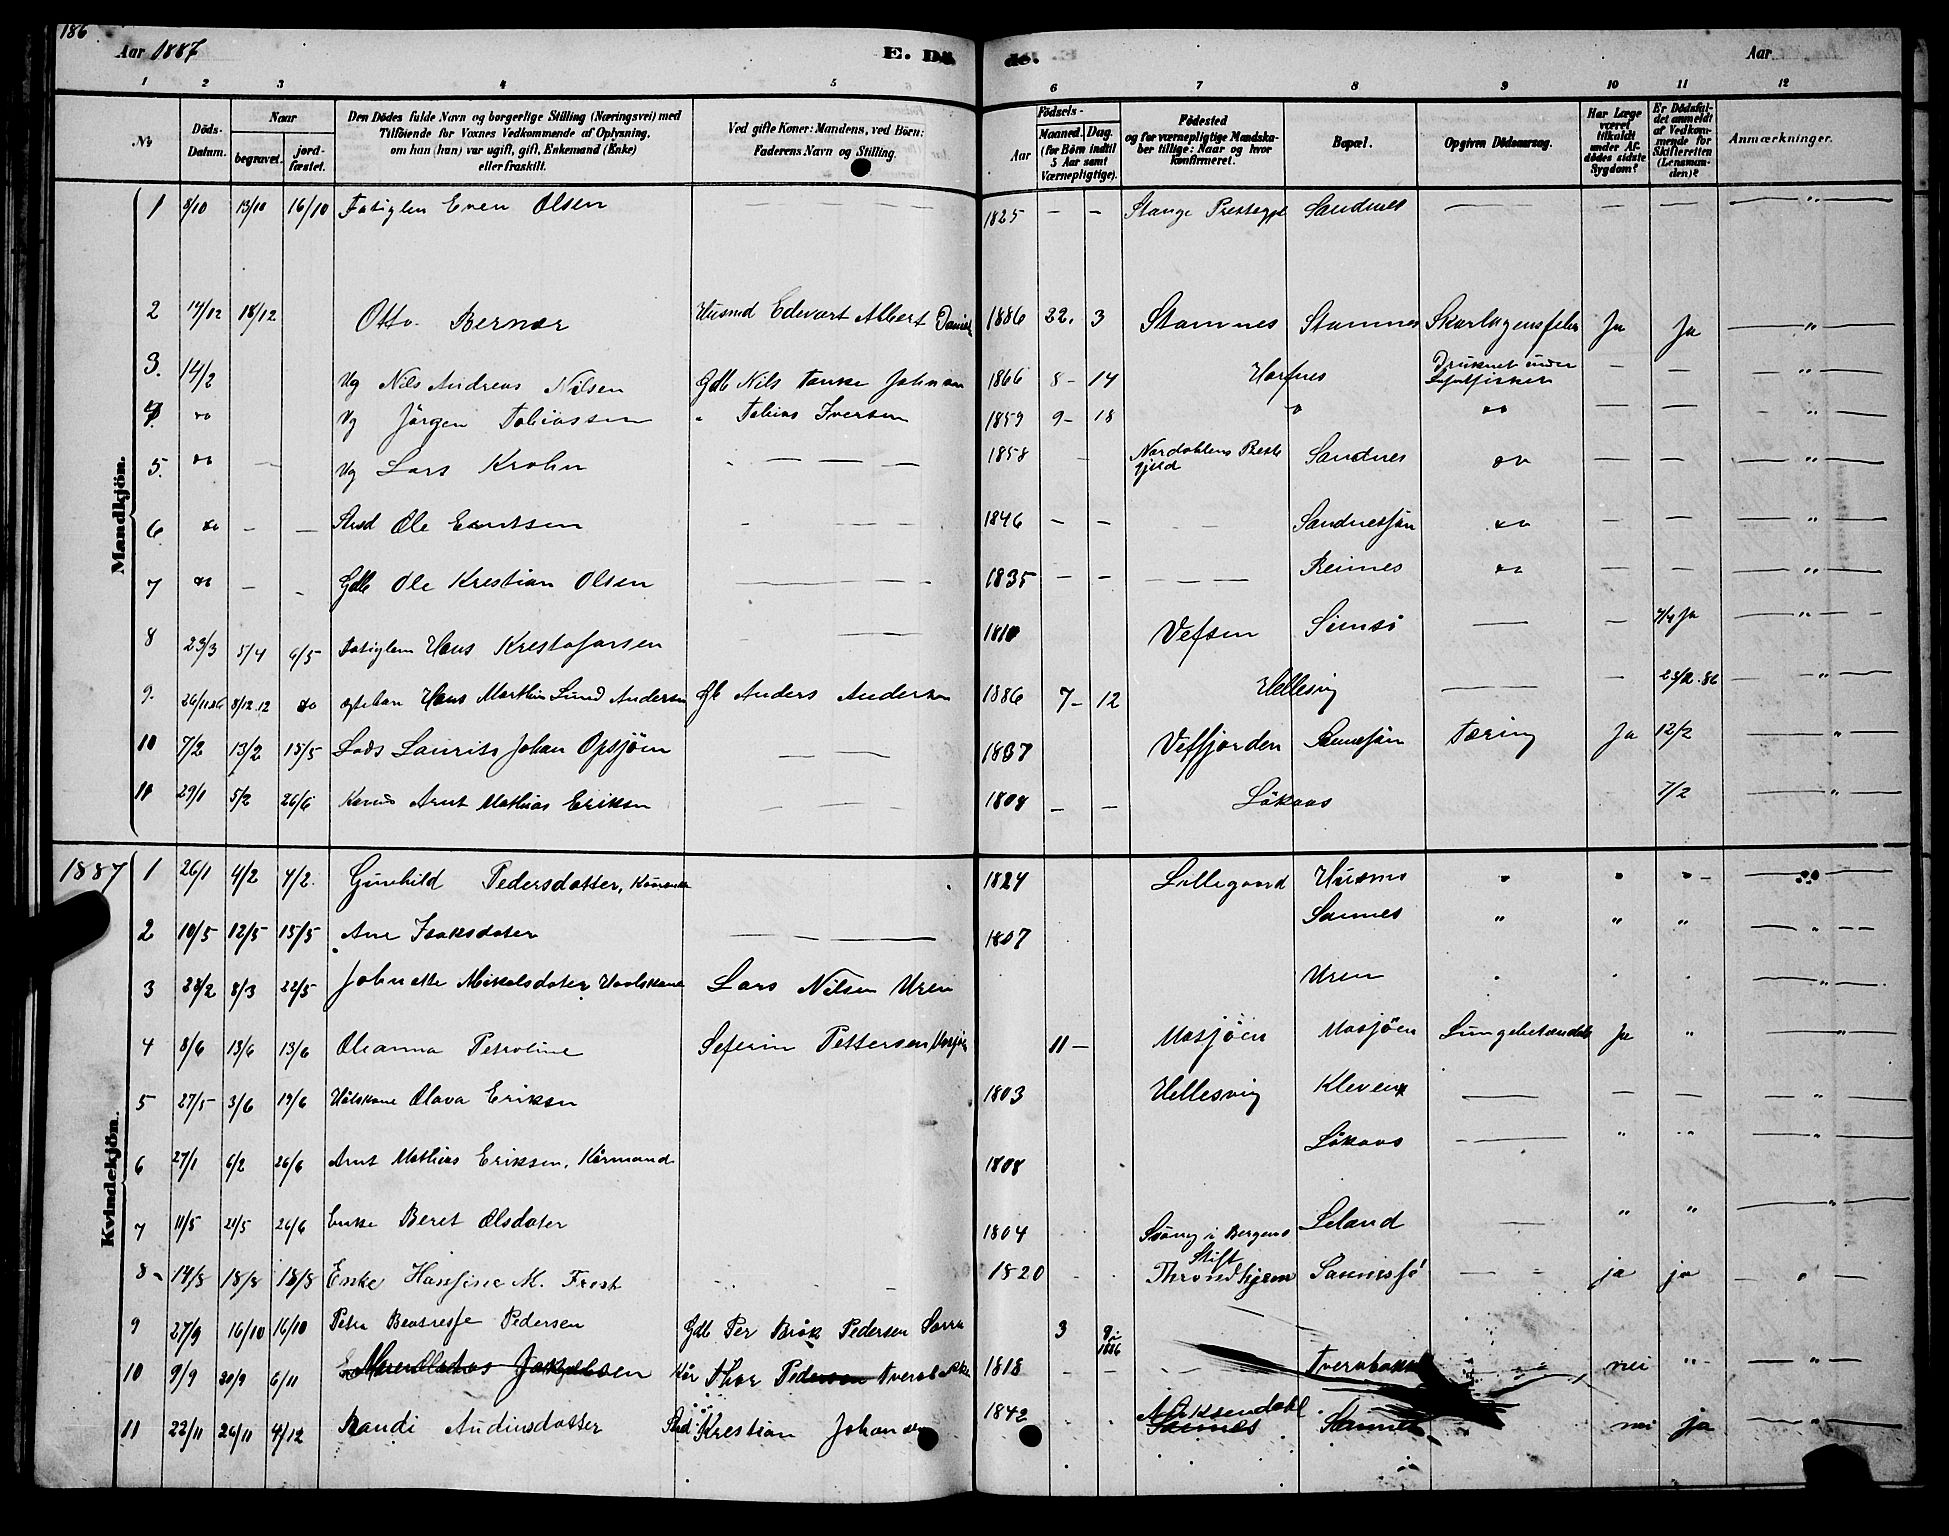 186
Aar 1887 E. Dö de. Aar
1 2 3 4 5 6 7 8 9 10 11 12
No Döds-Datum. Naar begravet. jordfæstet. Den Dödes fulde Navn og borgerlige Stilling (Næringsvei) med Tilföiende for Voxnes Vedkommende af Oplysning, om han (hun) var ugift, gift, Enkemand (Enke) eller fraskilt. Ved gifte Koner: Mandens, ved Börn: Faderens Navn og Stilling. Födsels- Aar Maaned. Dag. (for Börn indtil 5 Aar samt Værnepligtige). Födested og for værnepligtige Mandskaber tillige: Naar og hvor konfirmeret. Bopæl. Opgiven Dödsaarsag. Har Læge været tilkaldt under Afdödes sidste Sygdom? Er Dödsfaldet anmeldt af Vedkommende for Skifteretten (Lensmanden)? Anmærkninger.
Mandkjön.
1 8/10 13/10 16/10 Fatiglem Even Olsen — — — 1825 — — Stange Prestegjel Sandnes — — — — " —
2 14/12 18/12 Otto Bernær Husmd Edevart Albert Daniel 1886 22. 3 Stamnes Stamnes Skarlagensfeber Ja Ja — " —
3. 14/2 Ug Nils Andreas Nilsen Gdb Nils Tanke Johnsen 1866 8- 14 Harfnes Druknet under — — — " —
4. do Ug Jørgen Tobiassen " Tobias Iversen 1859 9- 18 do do — — — " —
5. do — Ug Lars Krohn - — — — 1858 — Nordahlens Preste gjeld Sandnes do — — — " —
6 do — — Strsd Ole Erntsen - — — 1846 — — — — Sandnesjøn do — — — " —
7 do — - Gdb Ole Krestian Olsen — — — 1835 — — — — — Reines do — — — " —
8 23/3 5/4 6/5 Fatiglem Hans Krestofarsen - — — 1810 Vefsen Simsö — — 7/4 Ja — " —
9. 26/11.86 8/12.12 do Hans Marthin Lund Andersen Gb Anders Andersen 1886 7- 12 Hellesvig — — 23/12.86 — " —
10 7/2 13/2 15/5 Lods Laurits Johan Opsjöen — — 1837 Velfjorden Sannesjön Tæring Ja 12/2 — " —
11 29/1 5/2 26/6 Arnt Mathias Eriksen - — — 1808 — — Lökaas 7/2 — " —
1887
Kvindekjön.
1 26/1 4/2 4/2. Gunhild Pedersdatter, 1824 Lillegaard Husms " " " - — " —
2 10/5 12/5 15/5 Ane Isaksdater — — — 1807 Sannes " " " — " — —
3 28/2 8/3 22/5 Johnette Mikalsdater Lars Nilsen Uren Uren " " " — " —
4 8/6 13/6 13/6 Oleanna Petroline Seferin Pettersen, Mosjøen 11 — Mosjöen Mosjöen Lungebetændelse Ja " — "
5 27/5 3/6 19/6 Olava Eriksen 1803 Hellesvig Kleven — — — — " —
6 27/1 6/2 26/6 Arnt Mathias Eriksen, Kårmand 1808 Lökaas — " " — " —
7 11/5 21/5 26/6 Enke Beret Olsdater 1804 i Bergens Stift Leland — " " — " —
8 14/8 18/8 18/8 Enke Hansine M. Frost - — 1820 Throndhjem Sannesjö — — ja ja — " —
9 27/9 16/10 16/10 Petra Pedersen Gdb Per Brök Pedersen 3 9 i 1886
10 9/9 20/9 6/11 Jakobsen Kår Thor Pedersen 1818 — — — nei " — "
11 22/11 26/11 4/12 Randi Audinsdatter Krestian Johansen 1842 Sannes nei ja — " —